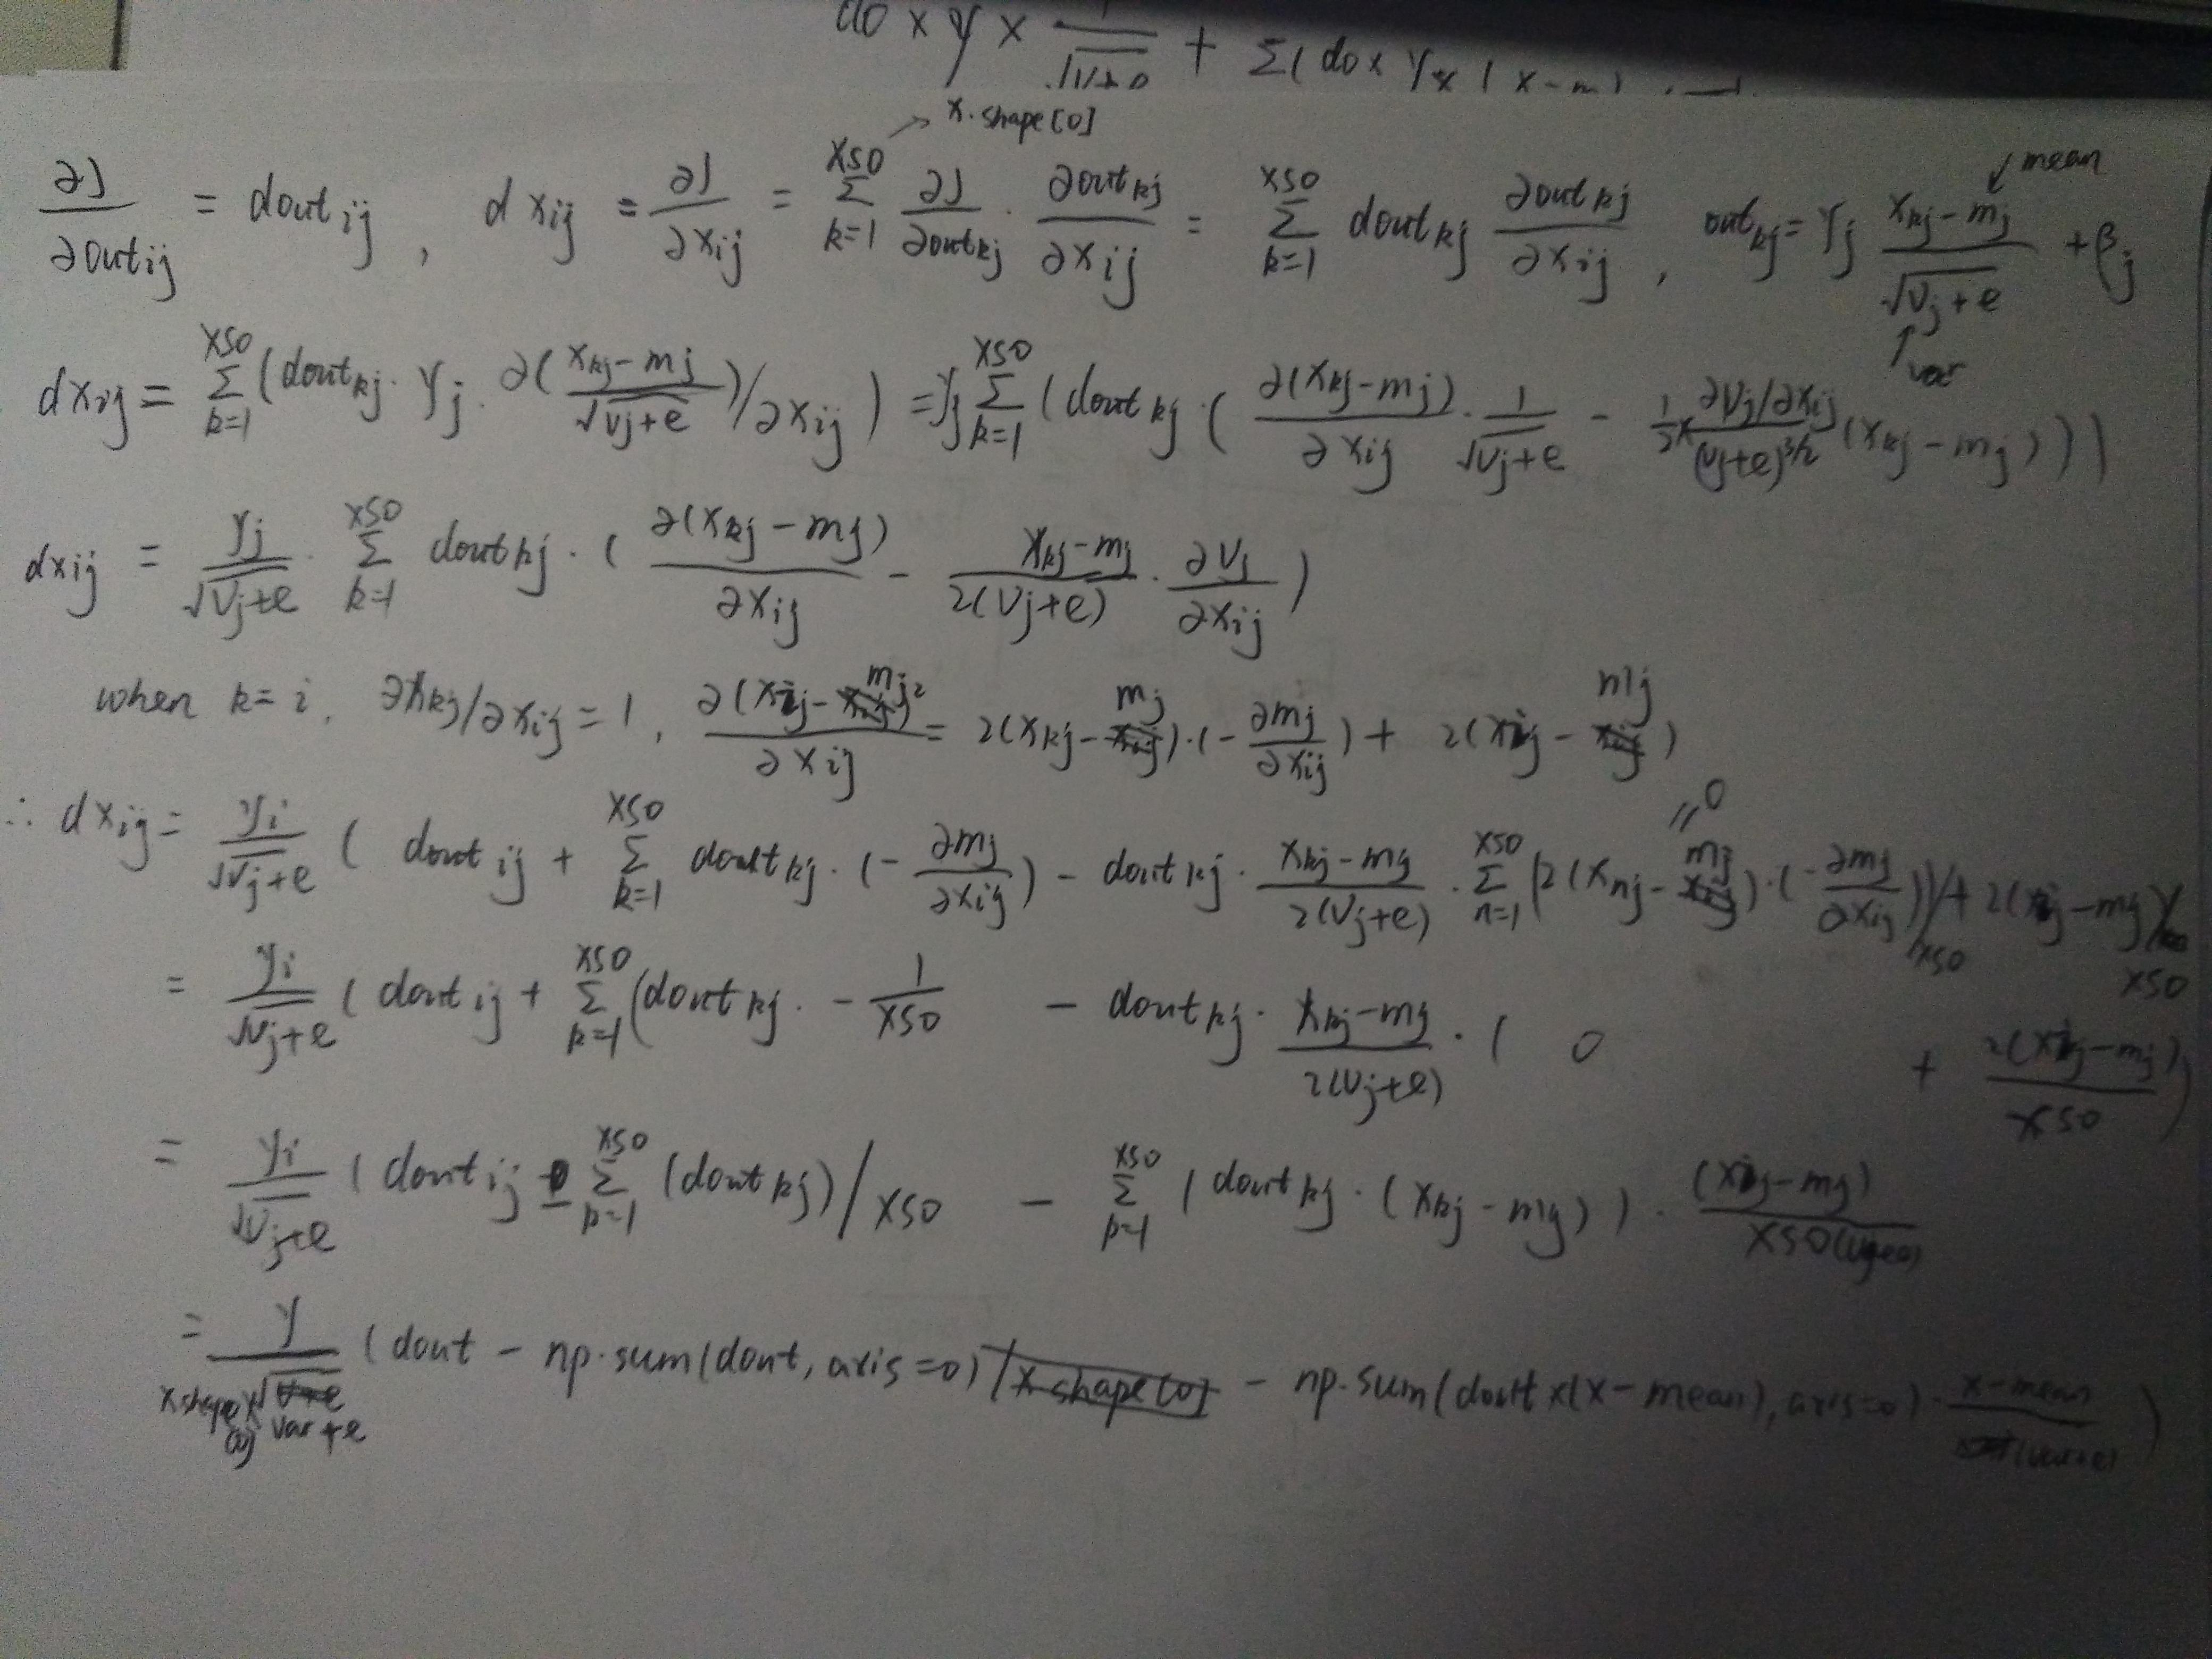 do × γ × 1/√(V+e) + Σ( do × γ × (x-m)
→ x.shape[0]
∂J/∂out_ij = dout_ij , dx_ij = ∂J/∂x_ij = Σ_{k=1}^{XS0} ∂J/∂out_kj · ∂out_kj/∂x_ij = Σ_{k=1}^{XS0} dout_kj ∂out_kj/∂x_ij , out_kj = γ_j (x_kj - m_j)/√(V_j+e) + β_j
↙ mean
↑ var
dx_ij = Σ_{k=1}^{XS0} (dout_kj · γ_j · ∂((x_kj - m_j)/√(V_j+e))/∂x_ij) = γ_j Σ_{k=1}^{XS0} (dout_kj · (∂(x_kj - m_j)/∂x_ij · 1/√(V_j+e) - 1/2 × (∂V_j/∂x_ij)/(V_j+e)^{3/2} (x_kj - m_j)))
dx_ij = γ_j/√(V_j+e) · Σ_{k=1}^{XS0} dout_kj · (∂(x_kj - m_j)/∂x_ij - (x_kj - m_j)/2(V_j+e) · ∂V_j/∂x_ij)
when k = i, ∂x_kj/∂x_ij = 1, ∂(x_ij - m_j)²/∂x_ij = 2(x_kj - m_j)·(-∂m_j/∂x_ij) + 2(x_ij - m_j)
∴ dx_ij = γ_i/√(V_j+e) (dout_ij + Σ_{k=1}^{XS0} dout_kj · (-∂m_j/∂x_ij) - dout_kj · (x_kj - m_j)/2(V_j+e) · Σ_{n=1}^{XS0} (2(x_nj - m_j)·(-∂m_j/∂x_ij))/XS0 + 2(x_ij - m_j)/XS0
= 0
= γ_i/√(V_j+e) (dout_ij + Σ_{k=1}^{XS0} (dout_kj · -1/XS0 - dout_kj · (x_kj - m_j)/2(V_j+e) · ( 0 + 2(x_ij - m_j)/XS0)
= γ_i/√(V_j+e) (dout_ij - Σ_{k=1}^{XS0} (dout_kj)/XS0 - Σ_{k=1}^{XS0} (dout_kj · (x_kj - m_j)) · (x_ij - m_j)/XS0(V_j+e)
= γ/x.shape[0]×√(var+e) (dout - np.sum(dout, axis=0) /x.shape[0] - np.sum(dout×(x-mean), axis=0) · (x-mean)/(var+e) )